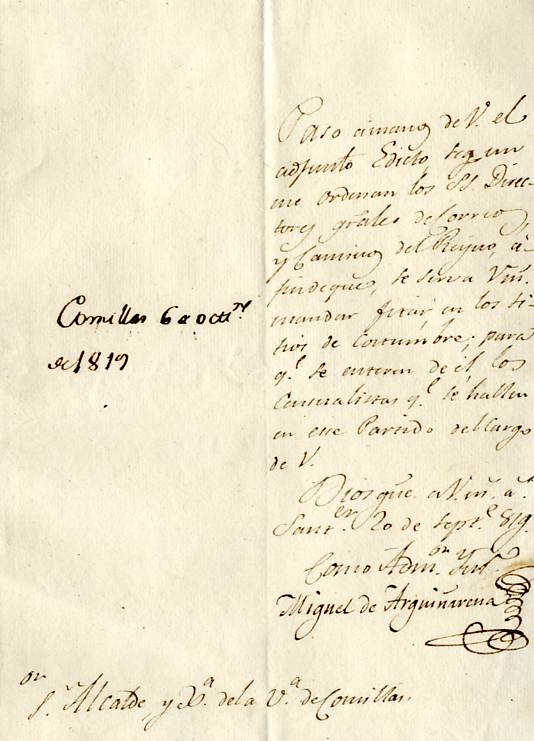 Paso á manos de V. el
adjunto Edicto, segun
me ordenan los SS. Direc-
tores grales de Correos,
y Caminos del Reyno, á
fin de que, se sirva Vm.
mandar fixar en los si-
tios de costumbre; para
q.e se enteren de él los
Causalistas q.e se hallen
en ese Partido del cargo
de V.
Dios gue. a Vm. a.s
Sant.er 20 de Sept.e 819.
Como Adm.on Yn.o
Miguel de Arguiñarena
Comillas 6 a oct.re
de 1819
S.or Alcalde, y de la V.a de Comillas.